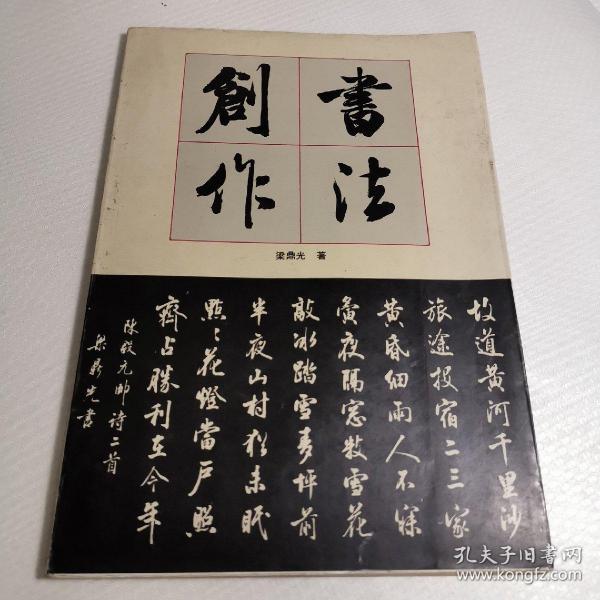 書法
創作
梁鼎光 著
故道黄河千里沙
旅途投宿二三家
黄昏细雨人不寐
夤夜隔窓牧雪花
敲冰踏雪弄坪前
半夜山村犹未眠
點點花燈當户照
齊占勝利在今年
陳毅元帥诗二首
梁鼎光書
孔夫子旧书网
www.kongfz.com